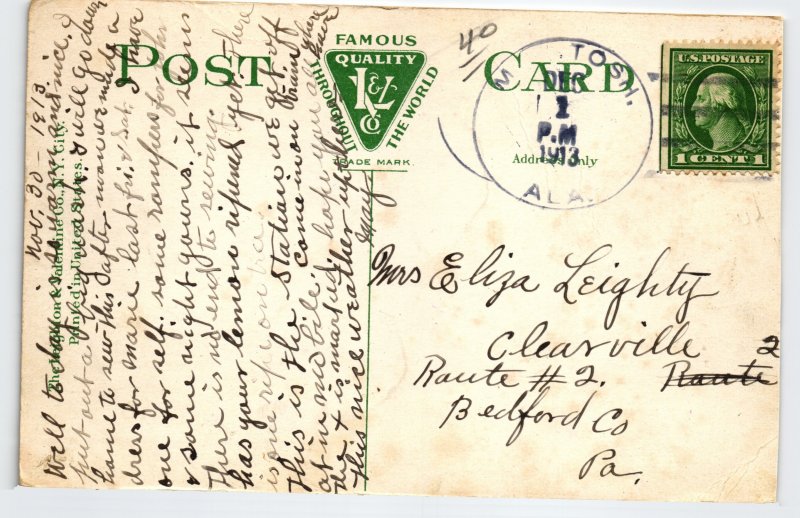 POST CARD
FAMOUS
QUALITY
THROUGHOUT THE WORLD
L&V
Co
TRADE MARK.
40
McINTOSH.
DEC
1
P.M
1913
ALA.
U.S. POSTAGE
1 CENT 1
Address Only
Mrs Eliza Leighty
Clearville
Route #2. Route 2
Bedford Co
Pa.
The Langsdorf Valentine Co. N.Y. City.
Printed in United States.
Nov. 30 - 1913
Well to day is warm and nice. I
put out a I will go down
home to sew this after. mom made a
dress for Marie last fri/sat. I have
one for self. some rompers for
& some night gowns. it seems
There is no end to sewing.
has your lemon ripened yet there
is one ripe on
This is the Station we get off
at in Mobile. come in on train
mark is marked. hope you all have
this nice weather up there
May